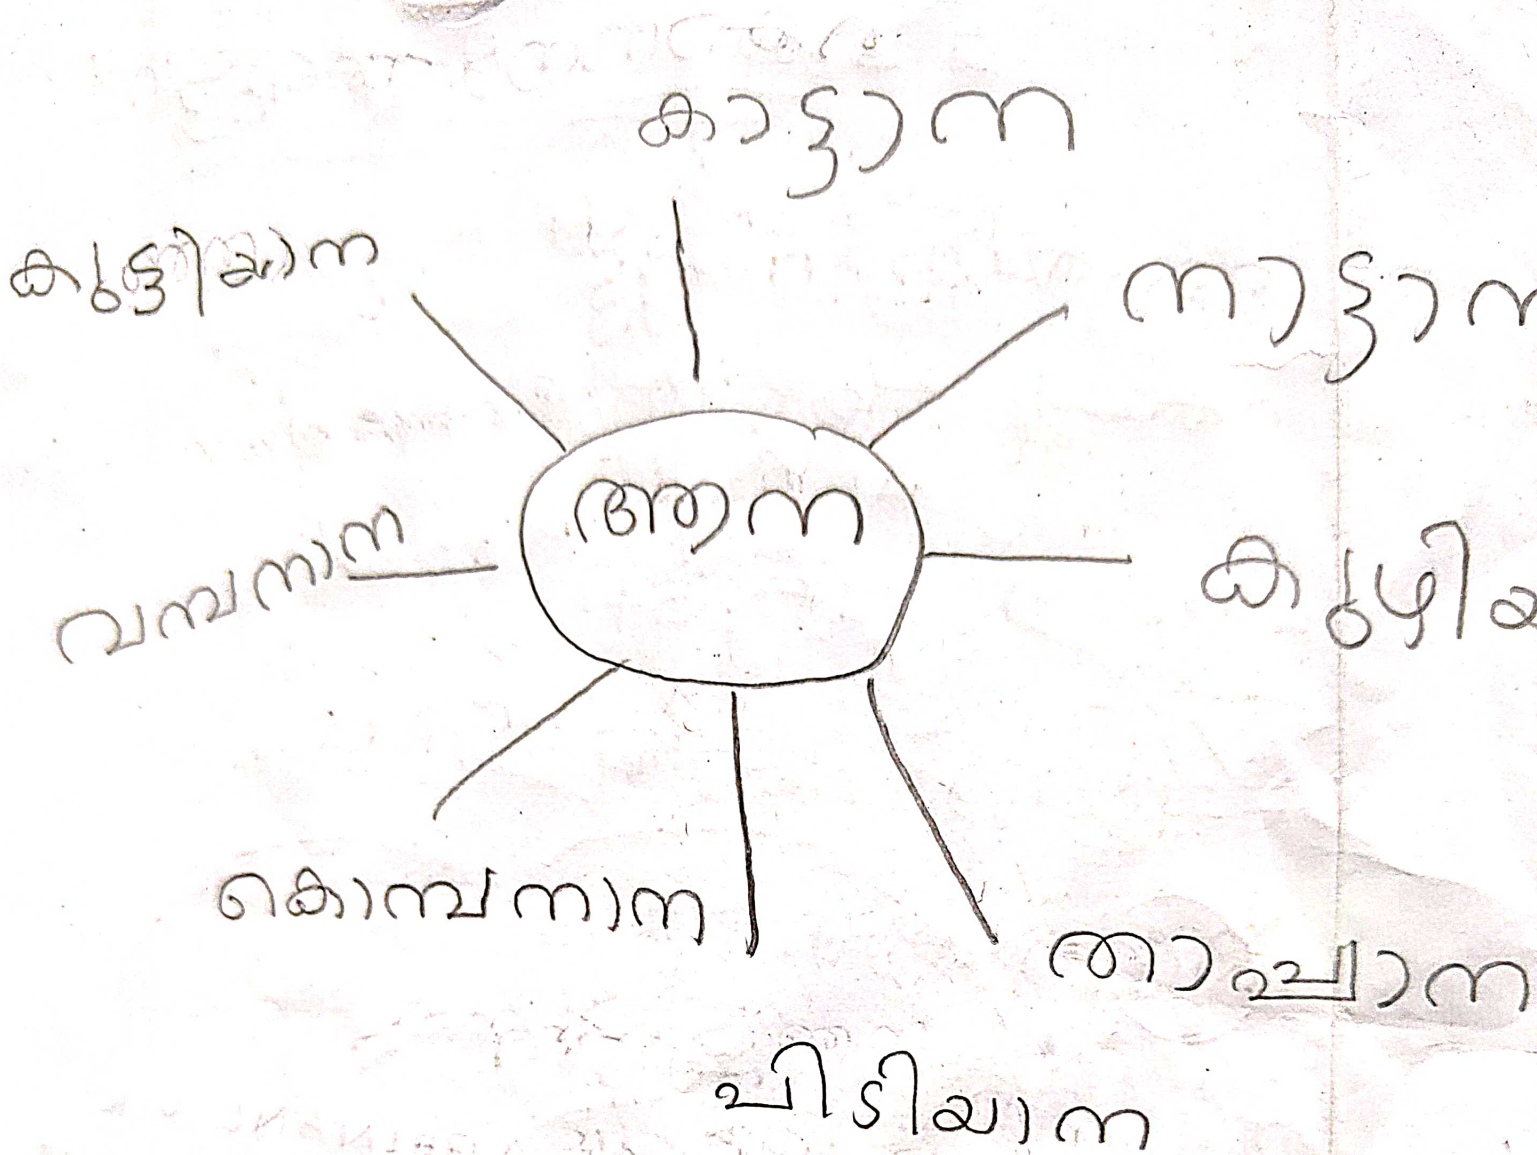 കാട്ടാന
കുട്ടിയാന
നാട്ടാന
ആന
വമ്പനാന
കുഴിയ
കൊമ്പനാന
താപ്പാന
പിടിയാന